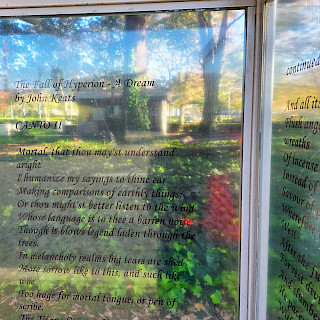 The Fall of Hyperion - A Dream
by John Keats
CANTO II
Mortal, that thou may'st understand
aright
I humanize my sayings to thine ear
Making comparisons of earthly things;
Or thou might'st better listen to the wind
Whose language is to thee a barren noise
Though it blows legend laden through the
trees.
In melancholy realms big tears are shed
More sorrow like to this, and such like
woe
Too huge for mortal tongue, or pen of
scribe.
The
continued
And all its
Flush
wreaths
Of incense
Instead of
Savour of
After the